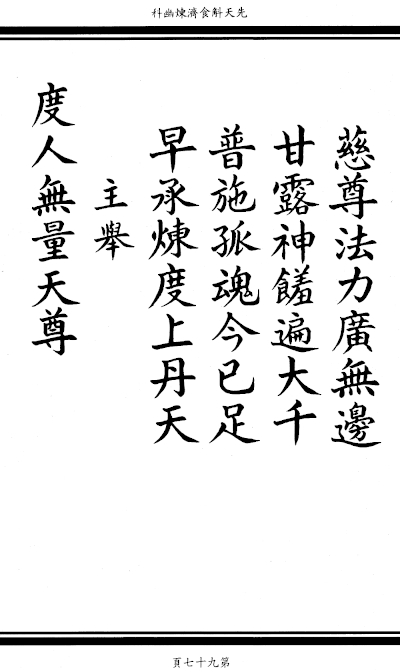 先天斛食濟煉幽科
慈尊法力廣無邊
甘露神饈遍大千
普施孤魂今已足
早承煉度上丹天
主舉
度人無量天尊
第九十七頁